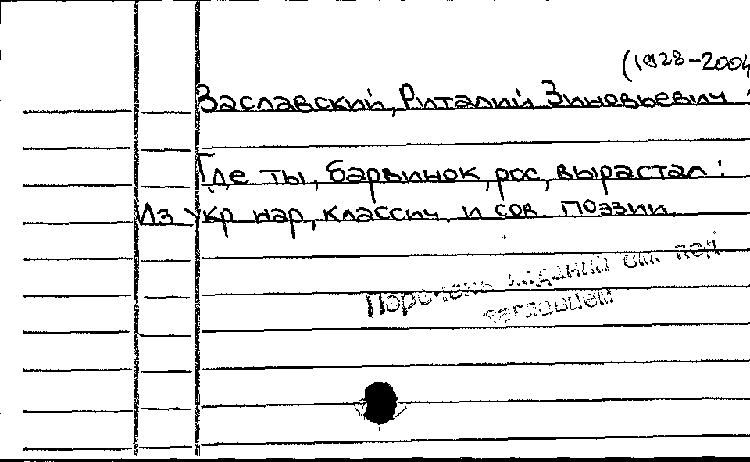 (1928-2004
Заславский, Риталий Зиновьевич.
Где ты, барвинок, рос, вырастал:
Из укр нар, классич. и сов поэзии.
Перечень изданий см. под
заглавием